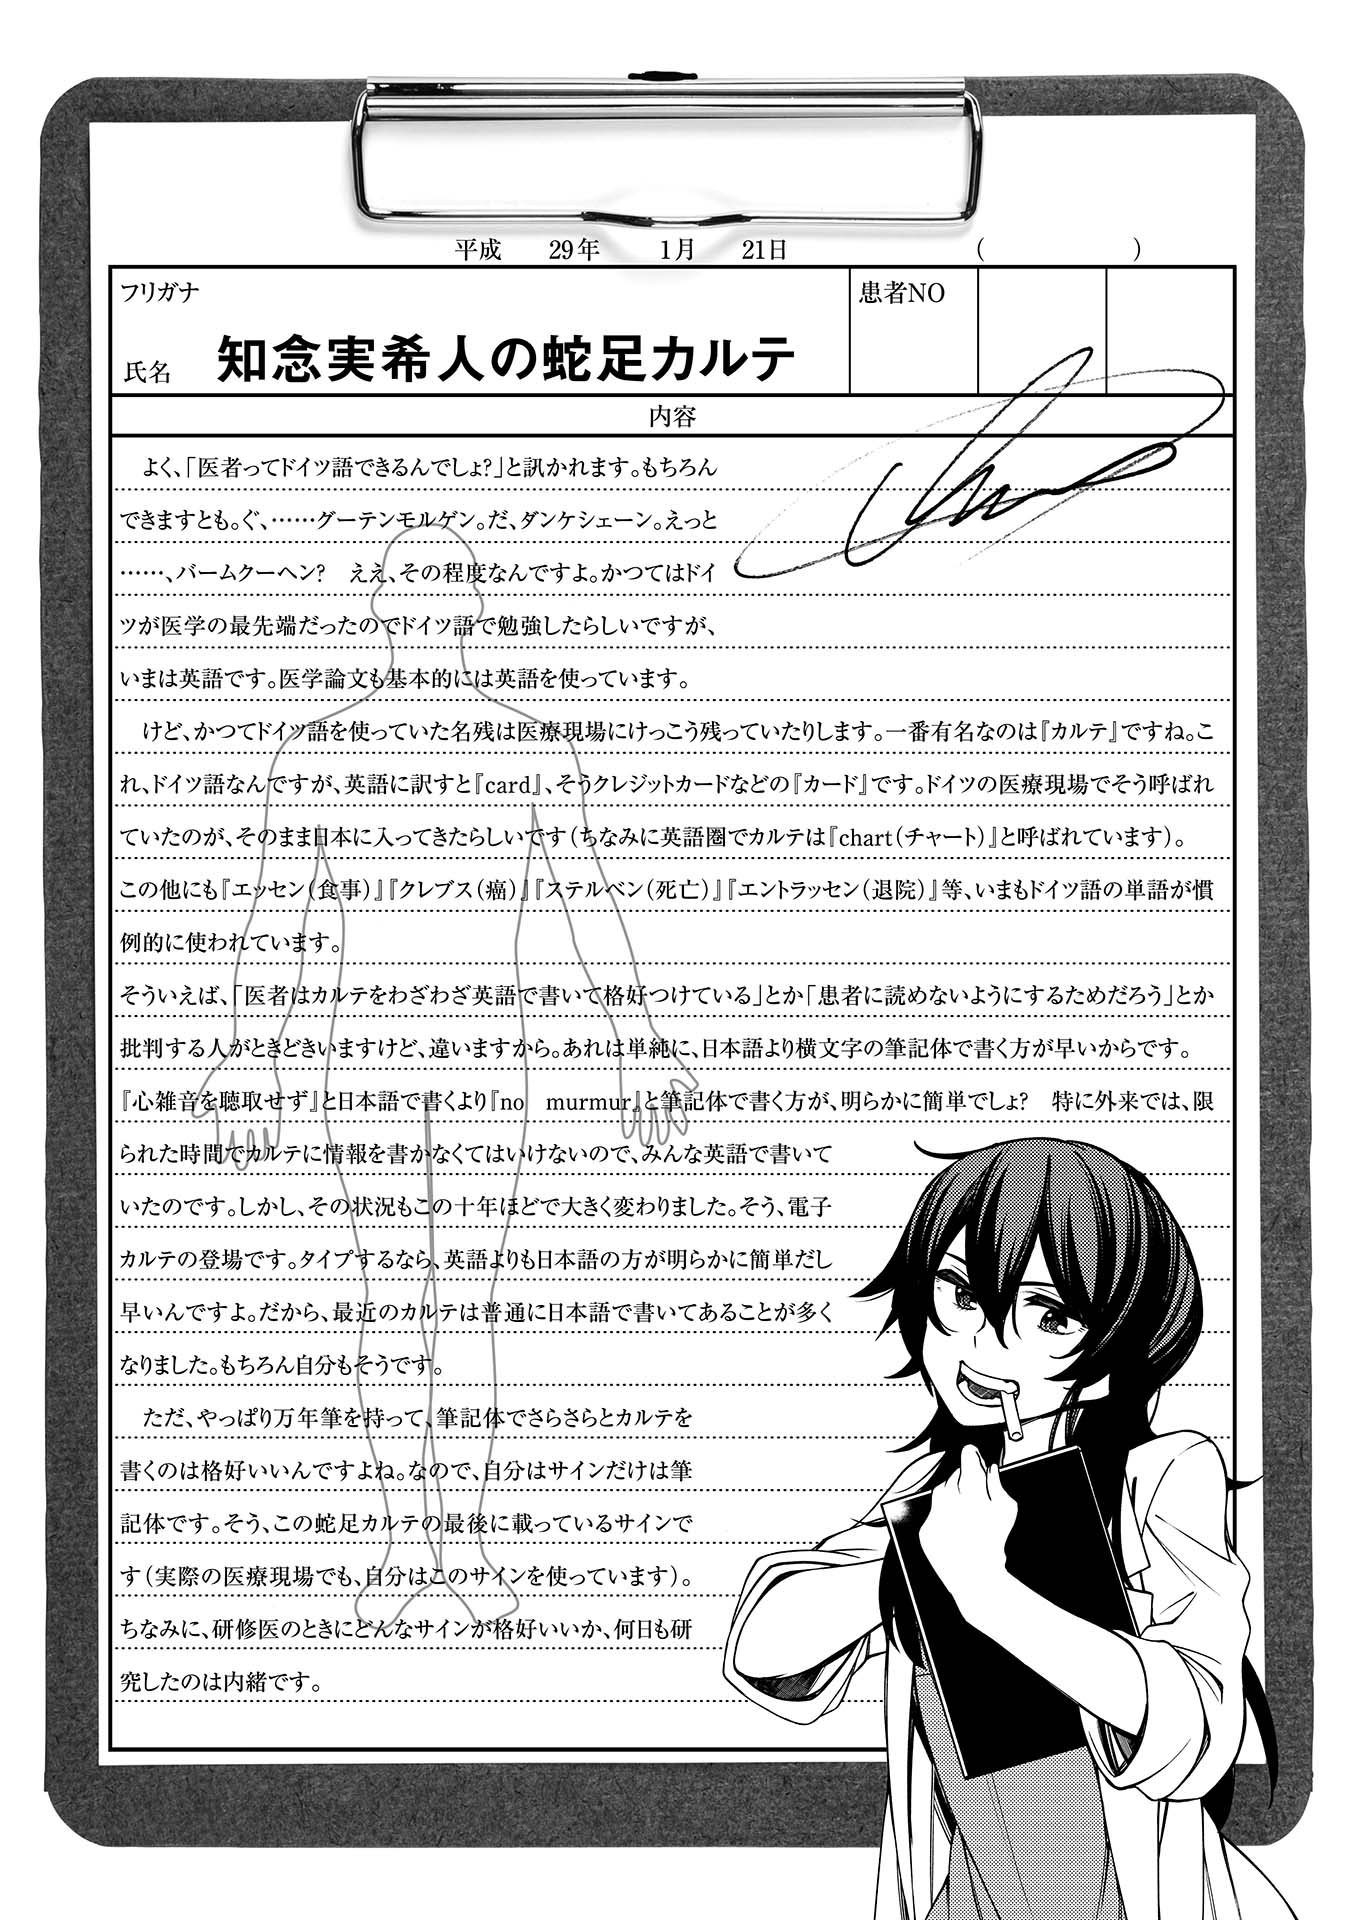 平成 29年 1月 21日 ( )
フリガナ
患者NO
氏名 知念実希人の蛇足カルテ
内容
よく、「医者ってドイツ語できるんでしょ?」と訊かれます。もちろん
できますとも。ぐ、……グーテンモルゲン。だ、ダンケシェーン。えっと
……、バームクーヘン? ええ、その程度なんですよ。かつてはドイ
ツが医学の最先端だったのでドイツ語で勉強したらしいですが、
いまは英語です。医学論文も基本的には英語を使っています。
けど、かつてドイツ語を使っていた名残は医療現場にけっこう残っていたりします。一番有名なのは『カルテ』ですね。こ
れ、ドイツ語なんですが、英語に訳すと『card』、そうクレジットカードなどの『カード』です。ドイツの医療現場でそう呼ばれ
ていたのが、そのまま日本に入ってきたらしいです(ちなみに英語圏でカルテは『chart(チャート)』と呼ばれています)。
この他にも『エッセン(食事)』『クレブス(癌)』『ステルベン(死亡)』『エントラッセン(退院)』等、いまもドイツ語の単語が慣
例的に使われています。
そういえば、「医者はカルテをわざわざ英語で書いて格好つけている」とか「患者に読めないようにするためだろう」とか
批判する人がときどきいますけど、違いますから。あれは単純に、日本語より横文字の筆記体で書く方が早いからです。
『心雑音を聴取せず』と日本語で書くより『no murmur』と筆記体で書く方が、明らかに簡単でしょ? 特に外来では、限
られた時間でカルテに情報を書かなくてはいけないので、みんな英語で書いて
いたのです。しかし、その状況もこの十年ほどで大きく変わりました。そう、電子
カルテの登場です。タイプするなら、英語よりも日本語の方が明らかに簡単だし
早いんですよ。だから、最近のカルテは普通に日本語で書いてあることが多く
なりました。もちろん自分もそうです。
ただ、やっぱり万年筆を持って、筆記体でさらさらとカルテを
書くのは格好いいんですよね。なので、自分はサインだけは筆
記体です。そう、この蛇足カルテの最後に載っているサインで
す(実際の医療現場でも、自分はこのサインを使っています)。
ちなみに、研修医のときにどんなサインが格好いいか、何日も研
究したのは内緒です。